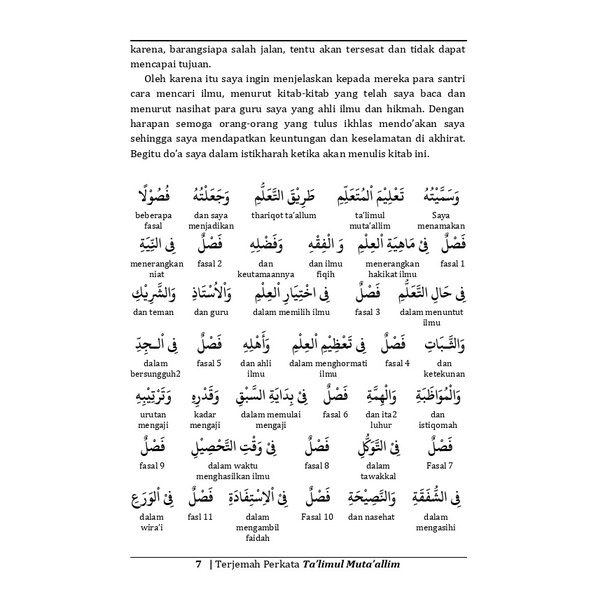 karena, barangsiapa salah jalan, tentu akan tersesat dan tidak dapat
mencapai tujuan.
Oleh karena itu saya ingin menjelaskan kepada mereka para santri
cara mencari ilmu, menurut kitab-kitab yang telah saya baca dan
menurut nasihat para guru saya yang ahli ilmu dan hikmah. Dengan
harapan semoga orang-orang yang tulus ikhlas mendo’akan saya
sehingga saya mendapatkan keuntungan dan keselamatan di akhirat.
Begitu do’a saya dalam istikharah ketika akan menulis kitab ini.
وَسَمَّيْتُهُ تَعْلِيْمَ اْلمُتَعَلِّمِ طَرِيْقَ التَّعَلُّمِ وَجَعَلْتُهُ فُصُوْلًا
Saya ta’limul thariqot ta’allum dan saya beberapa
menamakan muta’allim menjadikan fasal
فَصْلٌ فِيْ مَاهِيَةِ اْلعِلْمِ وَ الْفِقْهِ وَفَضْلِهِ فَصْلٌ فِى النِّيَّةِ
fasal 1 menerangkan dan ilmu dan fasal 2 menerangkan
hakikat ilmu fiqih keutamaannya niat
فِى حَالِ التَّعَلُّمِ فَصْلٌ فِى اخْتِيَارِ اْلعِلْمِ وَاْلأُسْتَاذِ وَالشَّرِيْكِ
dalam menuntut fasal 3 dalam memilih ilmu dan guru dan teman
ilmu
وَالثَّبَاتِ فَصْلٌ فِى تَعْظِيْمِ اْلعِلْمِ وَأَهْلِهِ فَصْلٌ فِى اْلجِدِّ
dan fasal 4 dalam menghormati dan ahli fasal 5 dalam
ketekunan ilmu ilmu bersungguh2
وَاْلمُوَاظَبَةِ وَالْهِمَّةِ فَصْلٌ فِيْ بِدَايَةِ السَّبْقِ وَقَدْرِهِ وَتَرْتِيْبِهِ
dan dan ita2 fasal 6 dalam memulai kadar urutan
istiqomah luhur mengaji mengaji mengaji
فَصْلٌ فِيْ التَّوَكُّلِ فَصْلٌ فِيْ وَقْتِ التَّحْصِيْلِ فَصْلٌ
Fasal 7 dalam fasal 8 dalam waktu fasal 9
tawakkal menghasilkan ilmu
فِى الشَّفَقَةِ وَالنَّصِيْحَةِ فَصْلٌ فِىْ اْلاِسْتِفَادَةِ فَصْلٌ فِىْ اْلوَرَعِ
dalam dan nasehat Fasal 10 dalam fasl 11 dalam
mengasihi mengambil wira’i
faidah
7 | Terjemah Perkata Ta’limul Muta’allim